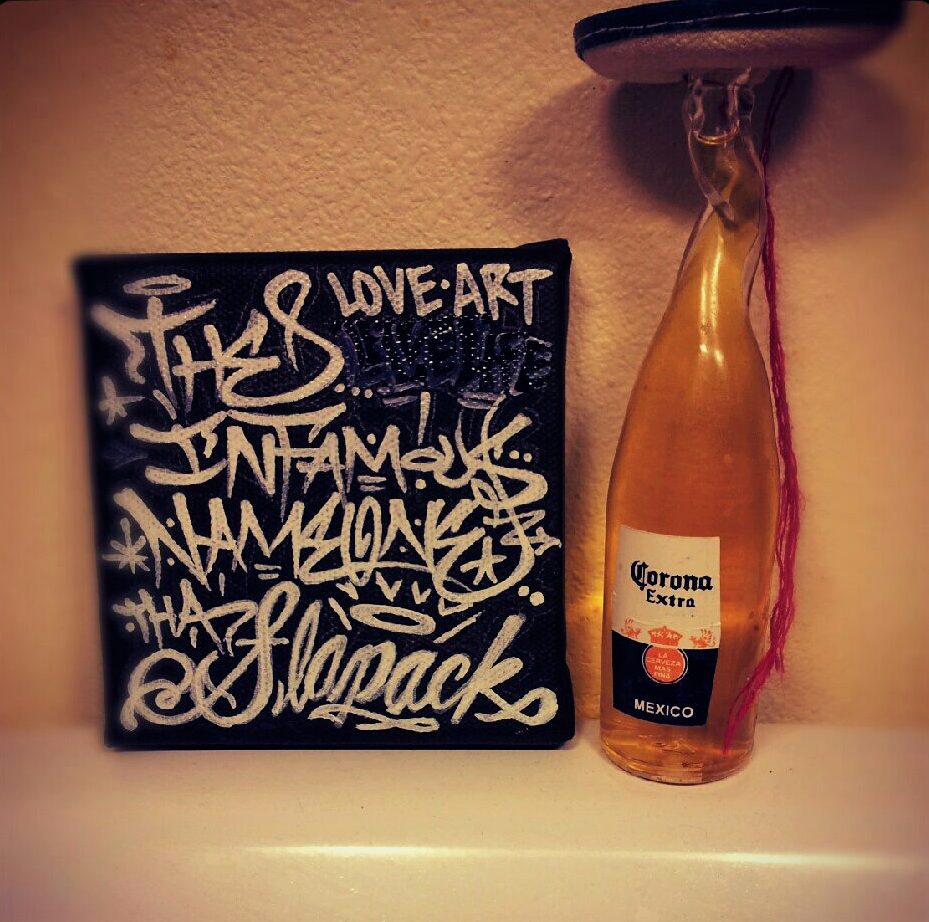 LOVE·ART
THE
INFAMOUS
NAMELONE
THA
Flapack
Corona
Extra
LA
CERVEZA
MAS
FINA
MEXICO